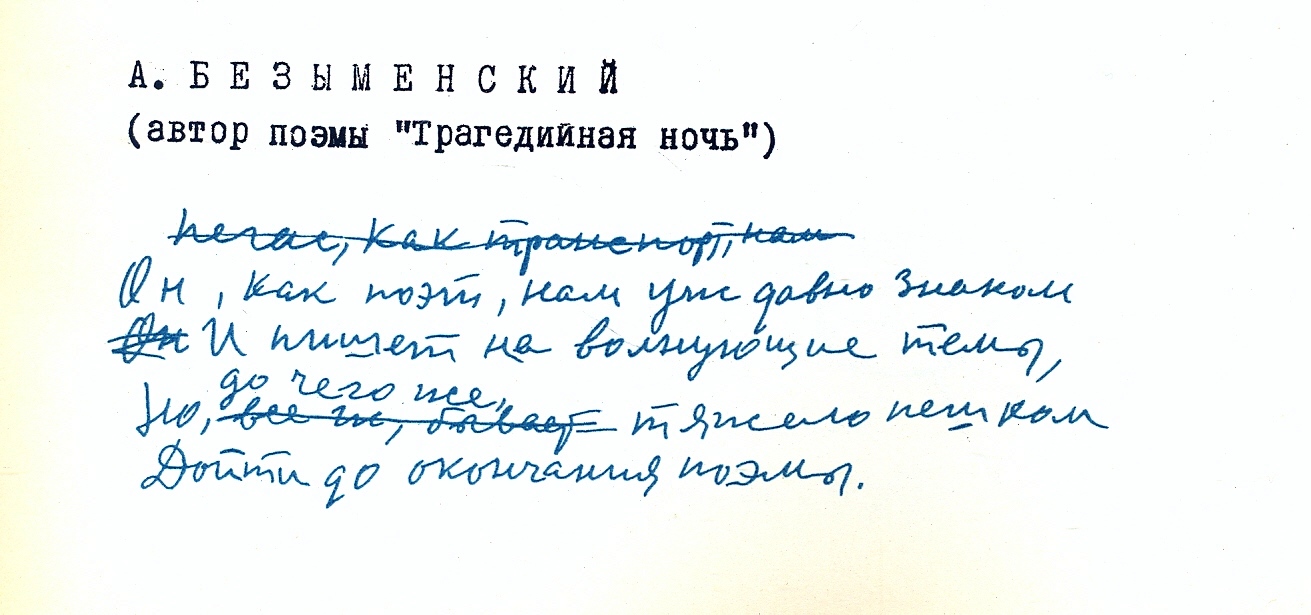 А. БЕЗЫМЕНСКИЙ
(автор поэмы "Трагедийная ночь")
Пегас, как транспорт, нам
Он, как поэт, нам уже давно знаком
Он И пишет на волнующие темы,
до чего же,
Но, все ж, бывает тяжело пешком
Дойти до окончания поэмы.